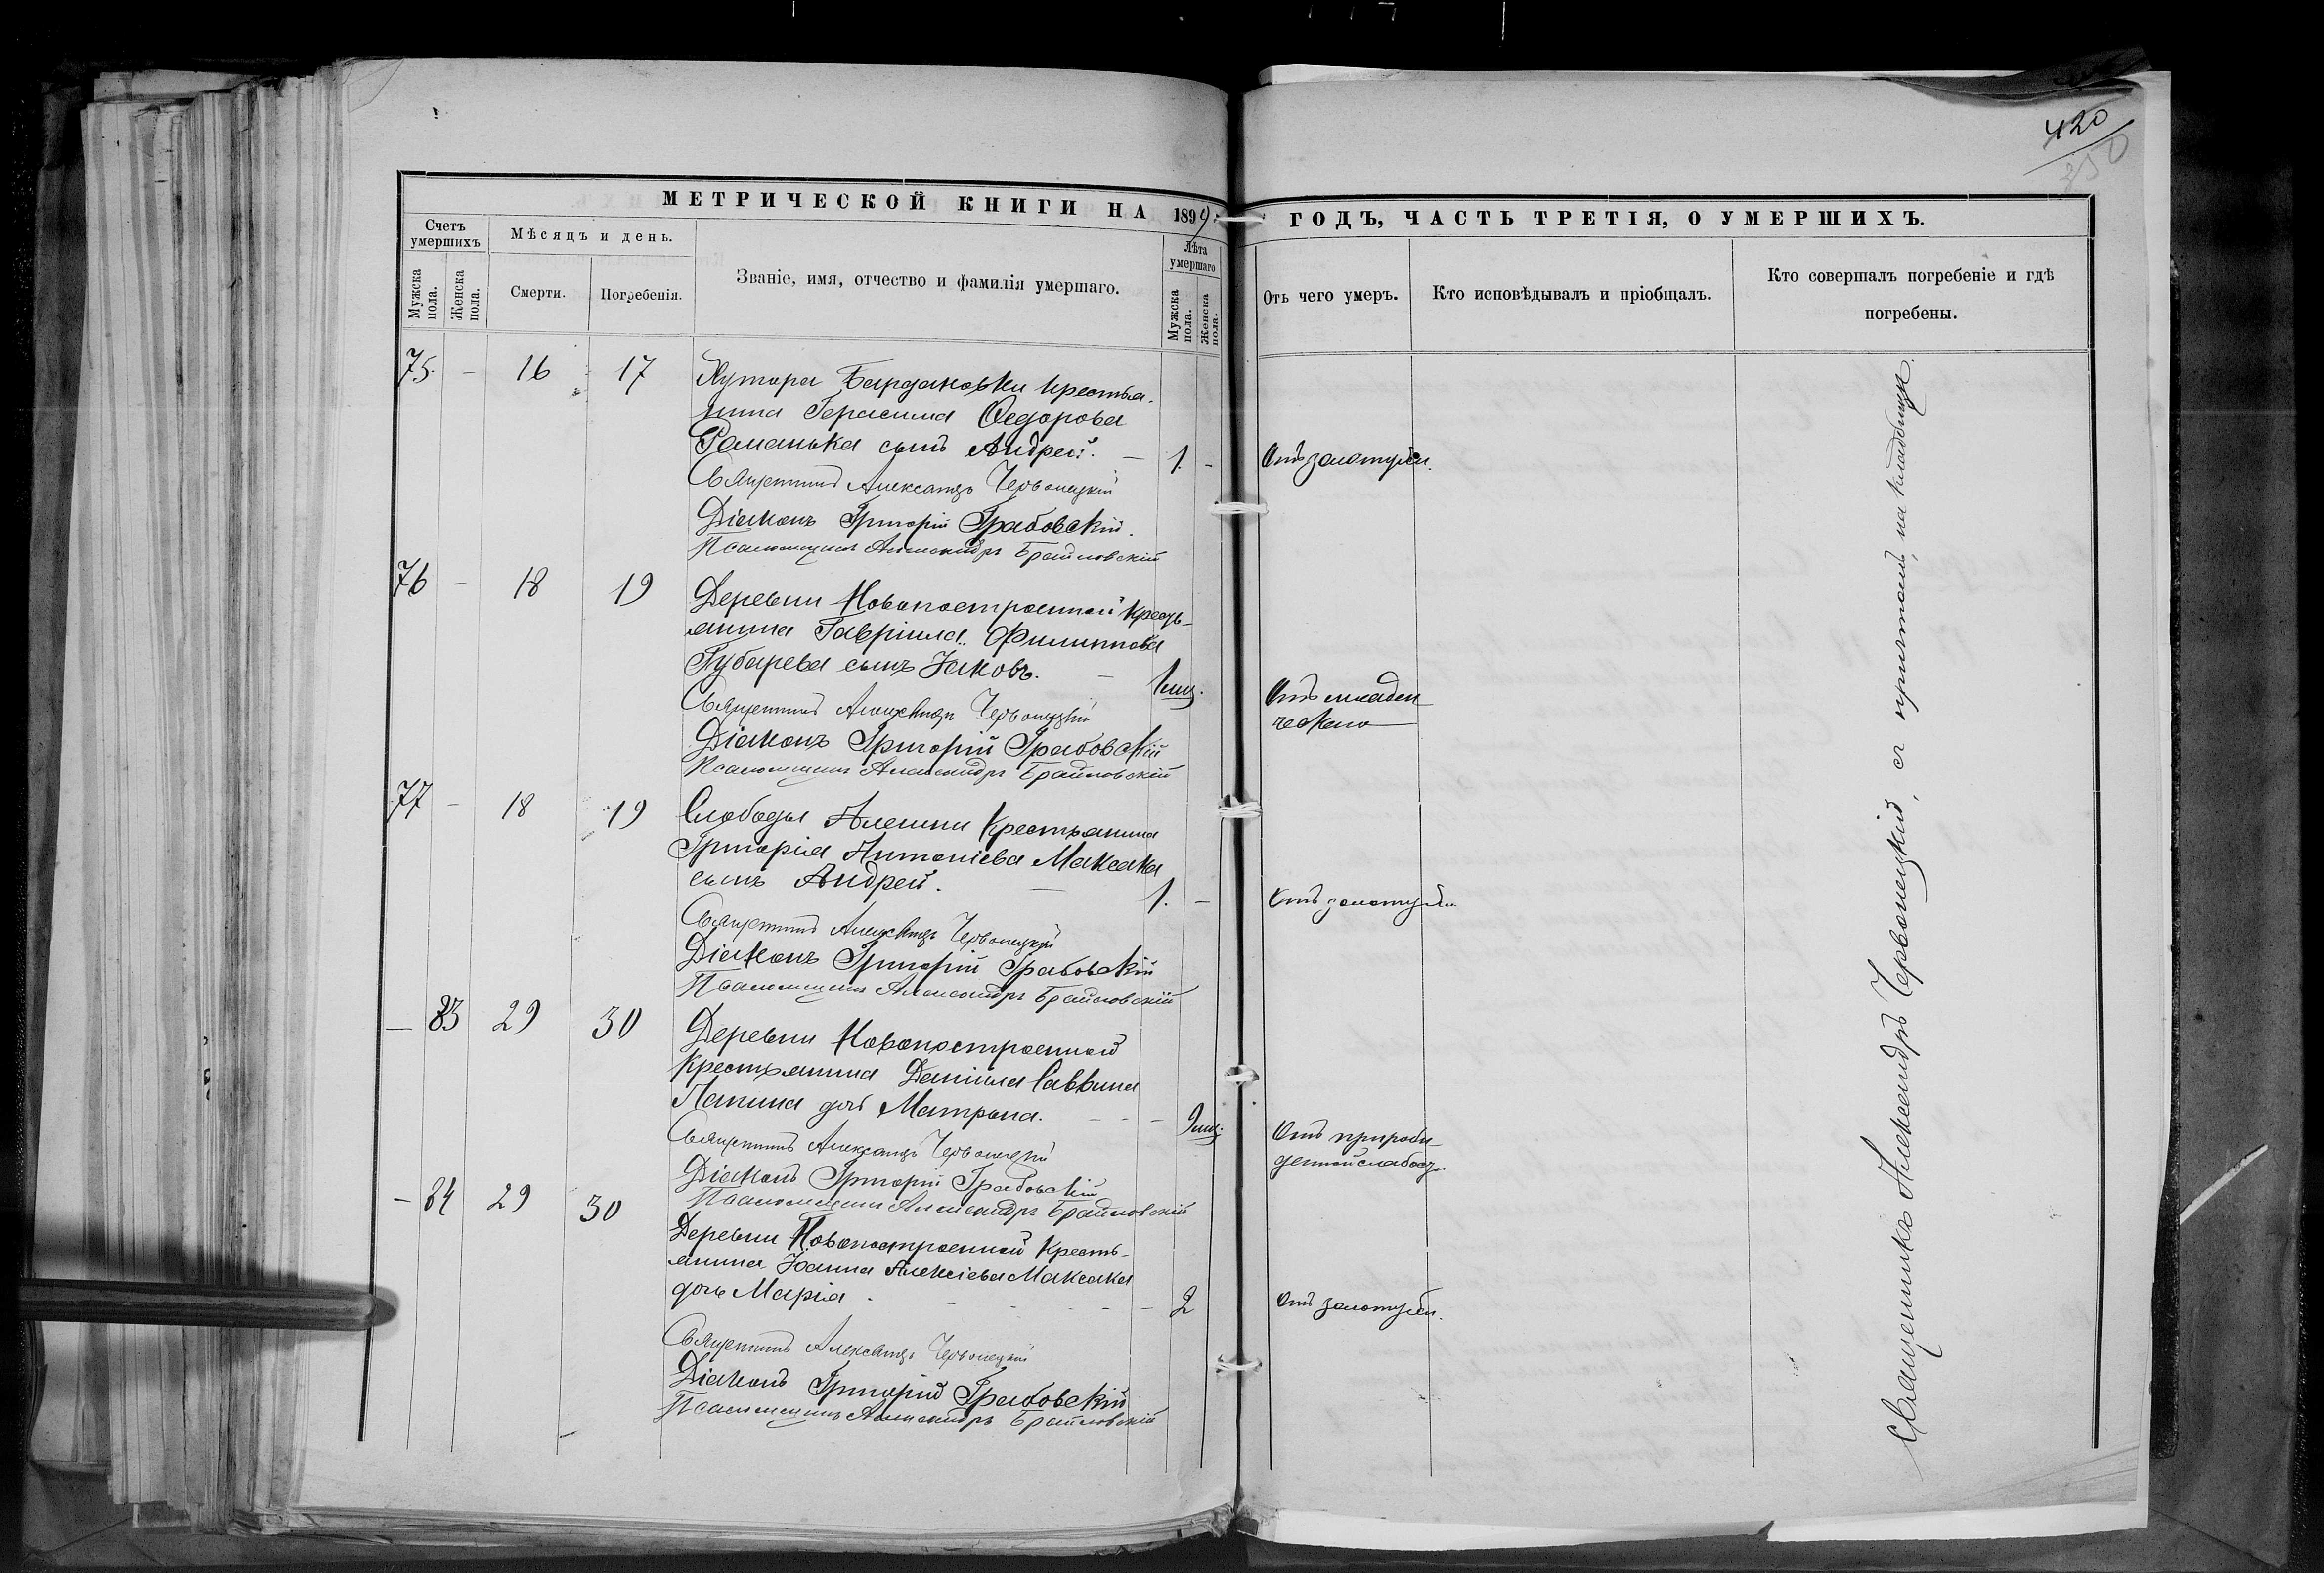 420
350
МЕТРИЧЕСКОЙ КНИГИ НА 1899
ГОДЪ, ЧАСТЬ ТРЕТІЯ, О УМЕРШИХЪ.
Счетъ умершихъ
Мужска пола.
Женска пола.
Мѣсяцъ и день.
Смерти.
Погребенія.
Званіе, имя, отчество и фамилія умершаго.
Лѣта умершаго
Мужска пола.
Женска пола.
Отъ чего умеръ.
Кто исповѣдывалъ и пріобщалъ.
Кто совершалъ погребеніе и гдѣ
погребены.
75. - 16 17 Хутора Бардаковки крестья-
нина Герасима Ѳедорова
Романька сынъ Андрей. — 1. - Отъ золотухи.
Священникъ Александръ Червонецкій
Діаконъ Григорій Грабовскій.
Псаломщикъ Александръ Браиловскій
76 - 18 19 Деревни Новопостроенной кресть-
янина Гавріила Филиппова
Губарева сынъ Іаковъ. — 1 мц. Отъ младен
ческаго
Священникъ Александръ Червонецкій
Діаконъ Григорій Грабовскій
Псаломщикъ Александръ Браиловскій
77 - 18 19 Слободы Алешки Крестьянина
Григорія Антоніева Максака
сынъ Андрей. — 1. - Отъ золотухи
Священникъ Александръ Червонецкій
Діаконъ Григорій Грабовскій
Псаломщикъ Александръ Браиловскій
— 83 29 30 Деревни Новопостроенной
Крестьянина Даніила Саввина
Папина дочь Матрона. - - - мц. Отъ прирож-
денной слабос.
Священникъ Александръ Червонецкій
Діаконъ Григорій Грабовскій
Псаломщикъ Александръ Браиловскій
- 84 29 30 Деревни Новопостроенной Кресть-
янина Іоанна Алексіева Максака
дочь Марія. - - - - 2 Отъ золотухи.
Священникъ Александръ Червонецкій
Діаконъ Григорій Грабовскій
Псаломщикъ Александръ Браиловскій
Священникъ Александръ Червонецкій, съ причтомъ, на кладбищѣ.